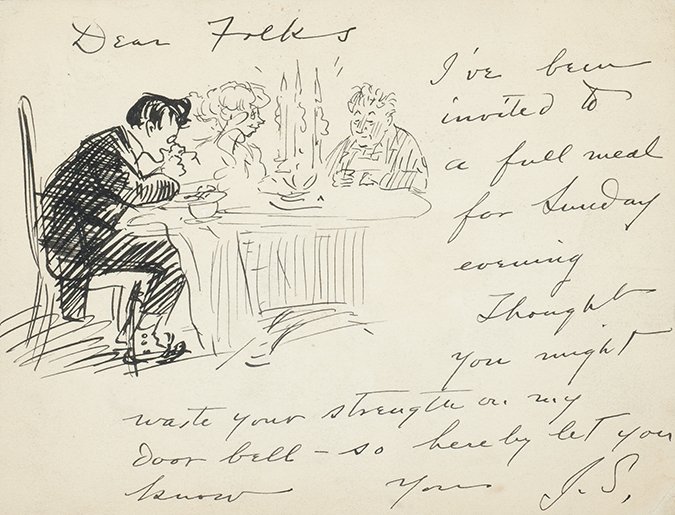 Dear Folks
I've been
invited to
a full meal
for Sunday
evening
Thought
you might
waste your strength on my
door bell – so hereby let you
know Yours J. S.